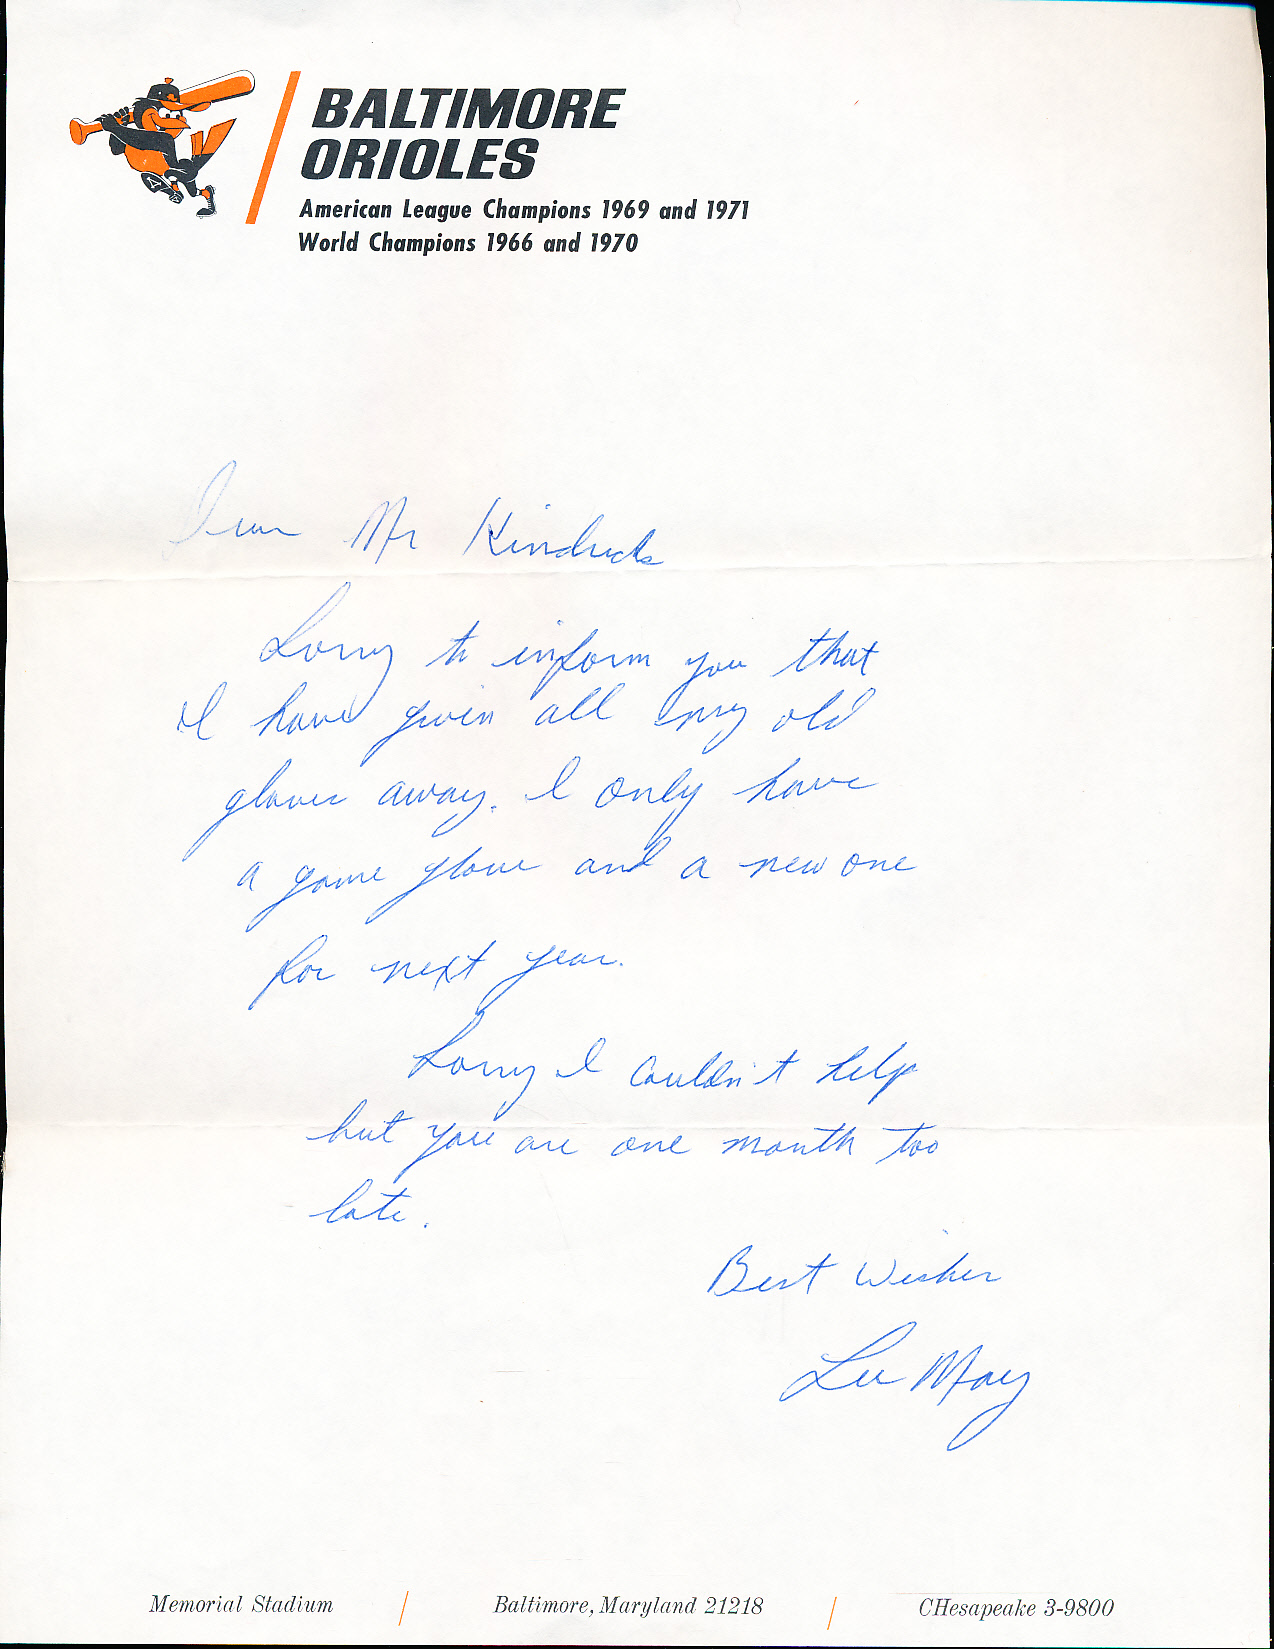 BALTIMORE
ORIOLES
American League Champions 1969 and 1971
World Champions 1966 and 1970
Dear Mr Kindricks
Sorry to inform you that
I have given all my old
gloves away. I only have
a game glove and a new one
for next year.
Sorry I couldn't help
but you are one month too
late.
Best Wishes
Lee May
Memorial Stadium / Baltimore, Maryland 21218 / CHesapeake 3-9800